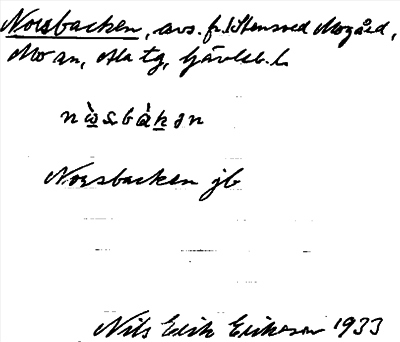 Norsbacken, avs. fr. Stensved Mogård,
Mo sn, Ala tg, Gävleb. l.
nὼsbàkən
Norsbacken jb
Nils Erik Erikson 1933